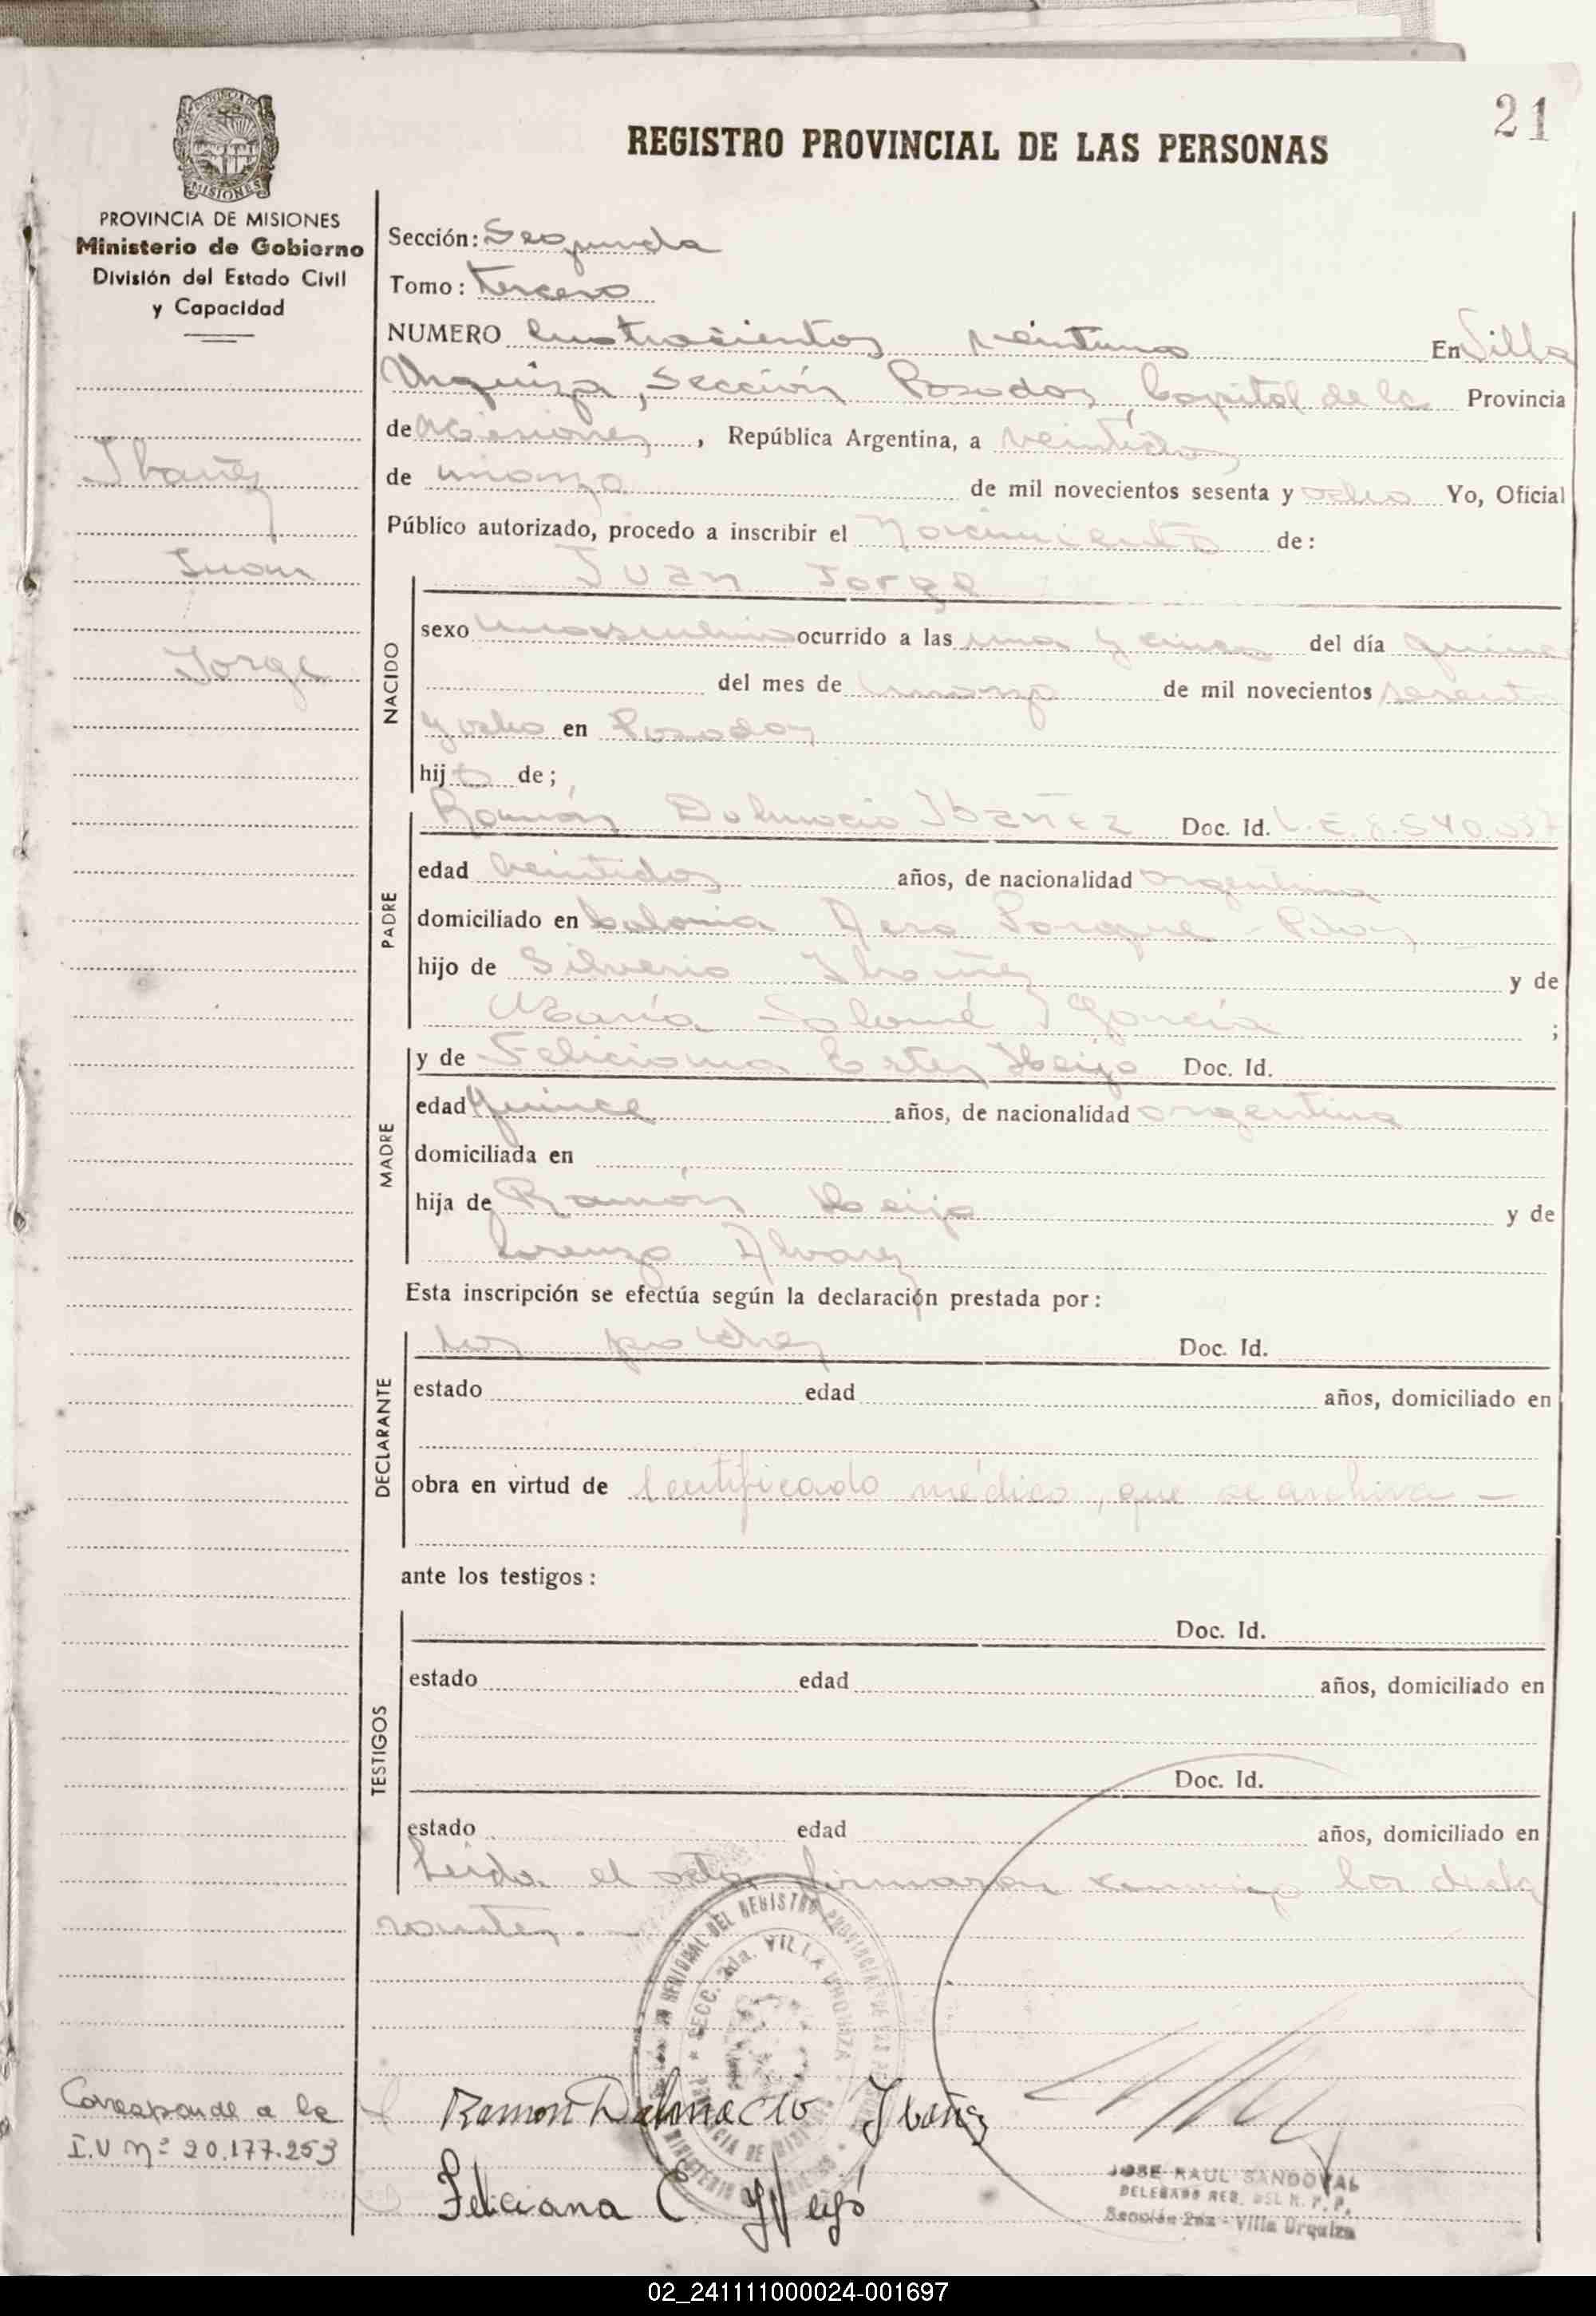 21
REGISTRO PROVINCIAL DE LAS PERSONAS
PROVINCIA DE MISIONES
Ministerio de Gobierno
División del Estado Civil
y Capacidad
Ibañez
Juan
Jorge
Sección: Segunda
Tomo: tercero
NUMERO Cuatrocientos veintiuno En Villa
Urquiza, Sección Posadas, Capital de la Provincia
de Misiones, República Argentina, a veintidos
de marzo de mil novecientos sesenta y ocho Yo, Oficial
Público autorizado, procedo a inscribir el Nacimiento de:
NACIDO
Juan Jorge
sexo masculino ocurrido a las una y cinco del día quince
del mes de marzo de mil novecientos sesenta
y ocho en Posadas
hijo de;
PADRE
Ramón Dalmacio Ibañez Doc. Id. L.E. 8.540.037
edad veintidos años, de nacionalidad argentina
domiciliado en Colonia Aero Parque - Pdas
hijo de Silverio Ibañez y de
María Salomé García ;
MADRE
y de Feliciana Ester Doc. Id.
edad quince años, de nacionalidad argentina
domiciliada en
hija de Ramón y de
Lorenza Alvarez
Esta inscripción se efectúa según la declaración prestada por:
DECLARANTE
los padres Doc. Id.
estado edad años, domiciliado en
obra en virtud de Certificado médico, que se archiva —
ante los testigos:
TESTIGOS
Doc. Id.
estado edad años, domiciliado en
Doc. Id.
estado edad años, domiciliado en
Leída el acta, firmaron conmigo los decla
rantes. —
REGIONAL DEL REGISTRO PROVINCIAL DE LAS PERSONAS
SECC. 2da. VILLA URQUIZA
PROVINCIA DE MISIONES
MINISTERIO DE GOBIERNO
Corresponde a la
I.U nº 20.177.253
Ramon Dalmacio Ibañez
Feliciana E
JOSE RAUL SANDOVAL
DELEGADO REG. DEL R. P. P.
Sección 2da - Villa Urquiza
02_241111000024-001697